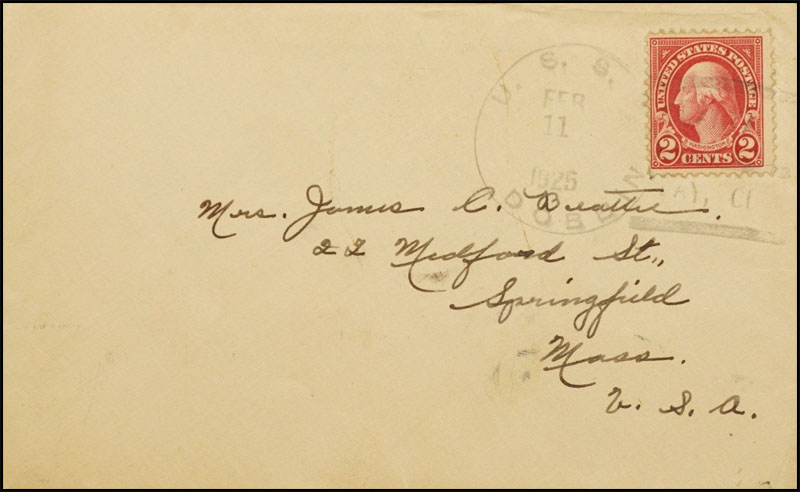 UNITED STATES POSTAGE
WASHINGTON
2 CENTS 2
U. S. S.
FEB
11
1925
Mrs. James C. Beattie.
22 Medford St.,
Springfield
Mass.
U. S. A.